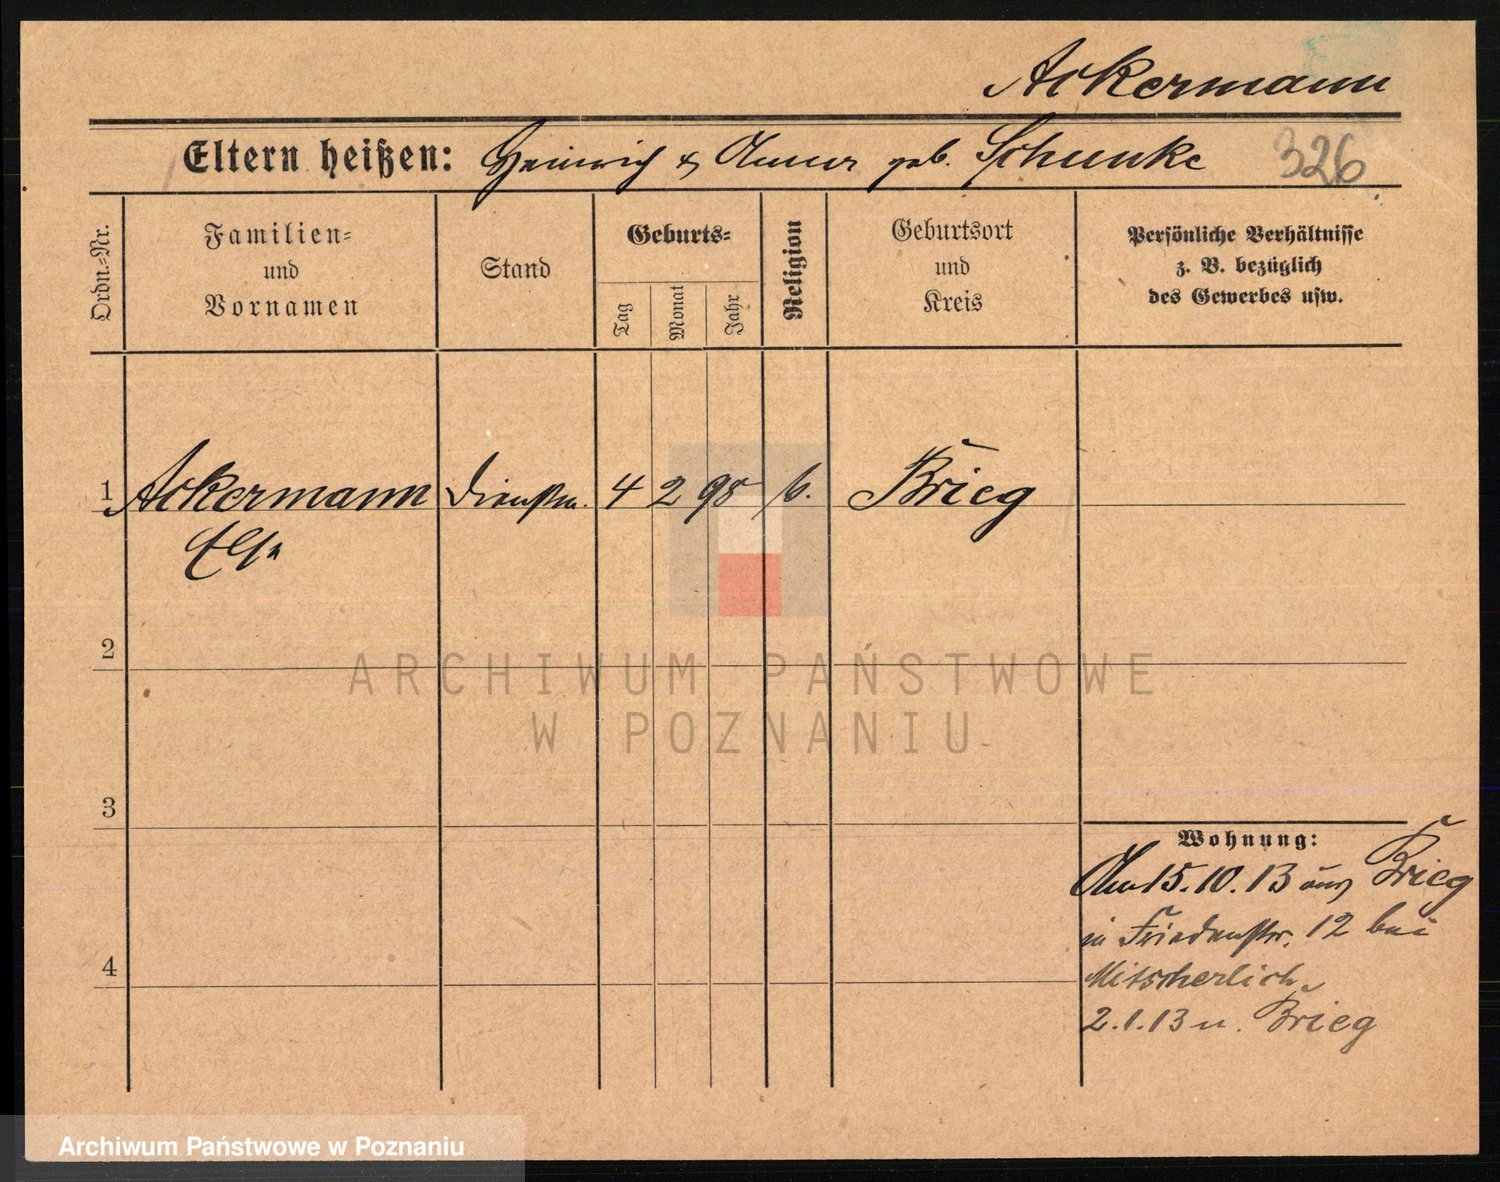 Ackermann
Eltern heißen: Heinrich & Anna geb. Schunke 326
Ordn.=Nr.
Familien=
und
Vornamen
Stand
Geburts=
Tag
Monat
Jahr
Religion
Geburtsort
und
Kreis
Persönliche Verhältnisse
z. B. bezüglich
des Gewerbes usw.
1 Ackermann Dienstm. 4 2 98 Brieg
Else
2
3
4
Wohnung:
Am 15.10.13 aus Brieg
in Friedenstr. 12 bei
Mitscherlich
2.1.13 n. Brieg
ARCHIWUM PAŃSTWOWE
W POZNANIU
Archiwum Państwowe w Poznaniu